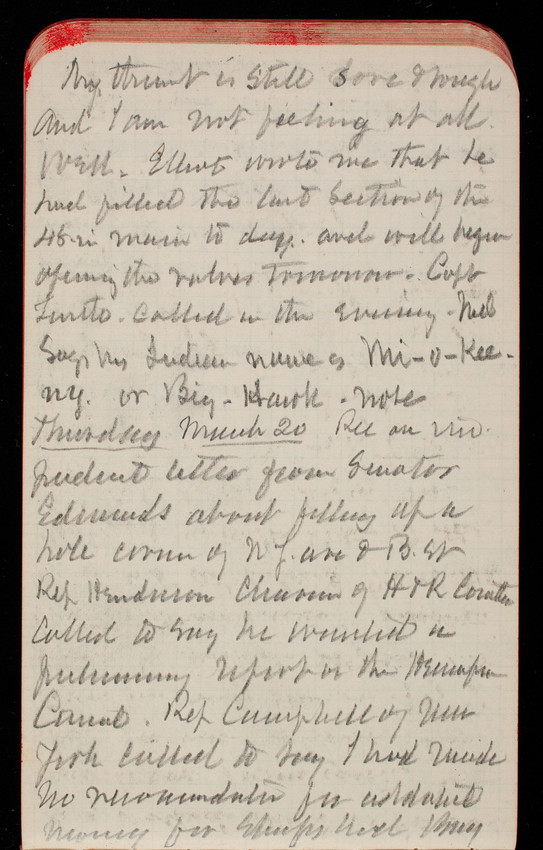 My throat is still sore & rough
and I am not feeling at all
well. Elliot wrote me that he
had filled the last section of the
48 in main to day. and will begin
opening the valves tomorrow. Capt
called in the evening. Ned
Says his Indian name is Mi-o-Kee-
ny. or Big-Hawk. note
Thursday March 20 Rec an im-
pudent letter from Senator
Edmunds about filling up a
hole corner of N J. ave & B. St
Rep Henderson Chairm of R & R Comttee
Called to say he wanted a
preliminary report on the Hennepin
Canal. Rep Campbell of New
York called to say I had made
no recommendation for additional
money for